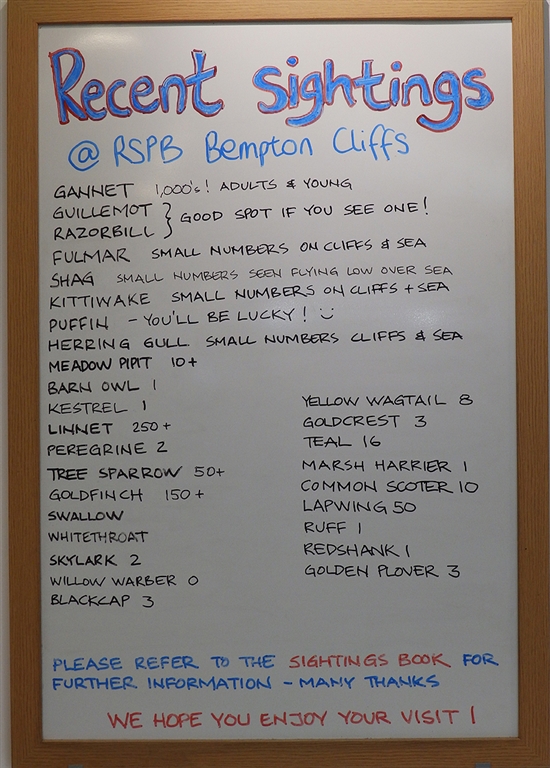 Recent Sightings
@ RSPB Bempton Cliffs
GANNET 1,000's! ADULTS & YOUNG
GUILLEMOT } GOOD SPOT IF YOU SEE ONE!
RAZORBILL
FULMAR SMALL NUMBERS ON CLIFFS & SEA
SHAG SMALL NUMBERS SEEN FLYING LOW OVER SEA
KITTIWAKE SMALL NUMBERS ON CLIFFS + SEA
PUFFIN - YOU'LL BE LUCKY! :)
HERRING GULL SMALL NUMBERS CLIFFS & SEA
MEADOW PIPIT 10+
BARN OWL 1
KESTREL 1
LINNET 250+
PEREGRINE 2
TREE SPARROW 50+
GOLDFINCH 150+
SWALLOW
WHITETHROAT
SKYLARK 2
WILLOW WARBER 0
BLACKCAP 3
YELLOW WAGTAIL 8
GOLDCREST 3
TEAL 16
MARSH HARRIER 1
COMMON SCOTER 10
LAPWING 50
RUFF 1
REDSHANK 1
GOLDEN PLOVER 3
PLEASE REFER TO THE SIGHTINGS BOOK FOR
FURTHER INFORMATION - MANY THANKS
WE HOPE YOU ENJOY YOUR VISIT !